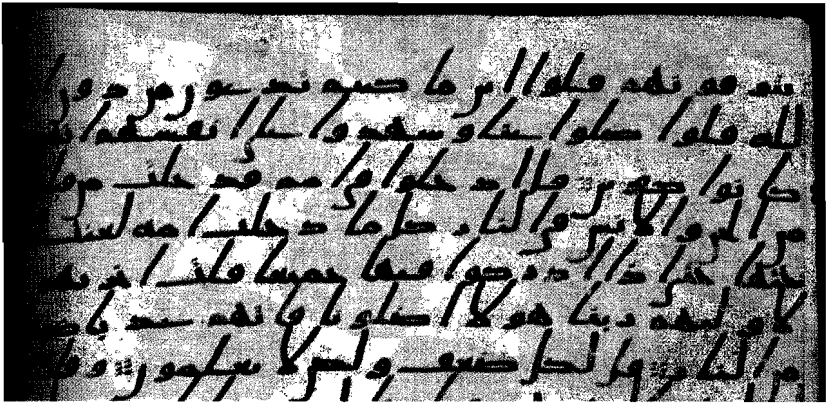 يتوفونهم قلوا اين ما كنتم تدعون من دون ا
لله قلوا ضلوا عنا وشهدوا علي انفسهم انهم
كنوا كفرين قل ادخلوا في امم قد خلت من
من الجن والانس في النار كلما دخلت امه لعنت
اختها حتي اذا اداركوا فيها جميعا قلت اخريهم
لاوليهم ربنا هولا اضلونا فاتهم عذابا
من النار قل لكل ضعف ولكن لا تعلمون